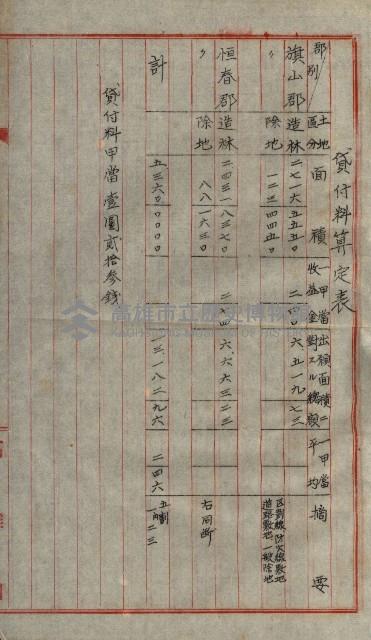 貸付料算定表
郡別 土地区分 面積 一甲当収益金 出願面積ニ対スル総額 一甲当平均 摘要
旗山郡 造林 二七一六五五五〇 二四〇 六五一九七三 区劃線防火線敷地
〃 除地 一二三四四五〇 道路敷地一般除地
恒春郡 造林 二四三一八三七〇 六六六三二三 右同断
〃 除地 八八一六三〇
計 五三六〇〇〇〇〇 一三一八二九六 二四六 五割 一円二三
貸付料甲當壹圓貳拾參錢
高雄市立歷史博物館